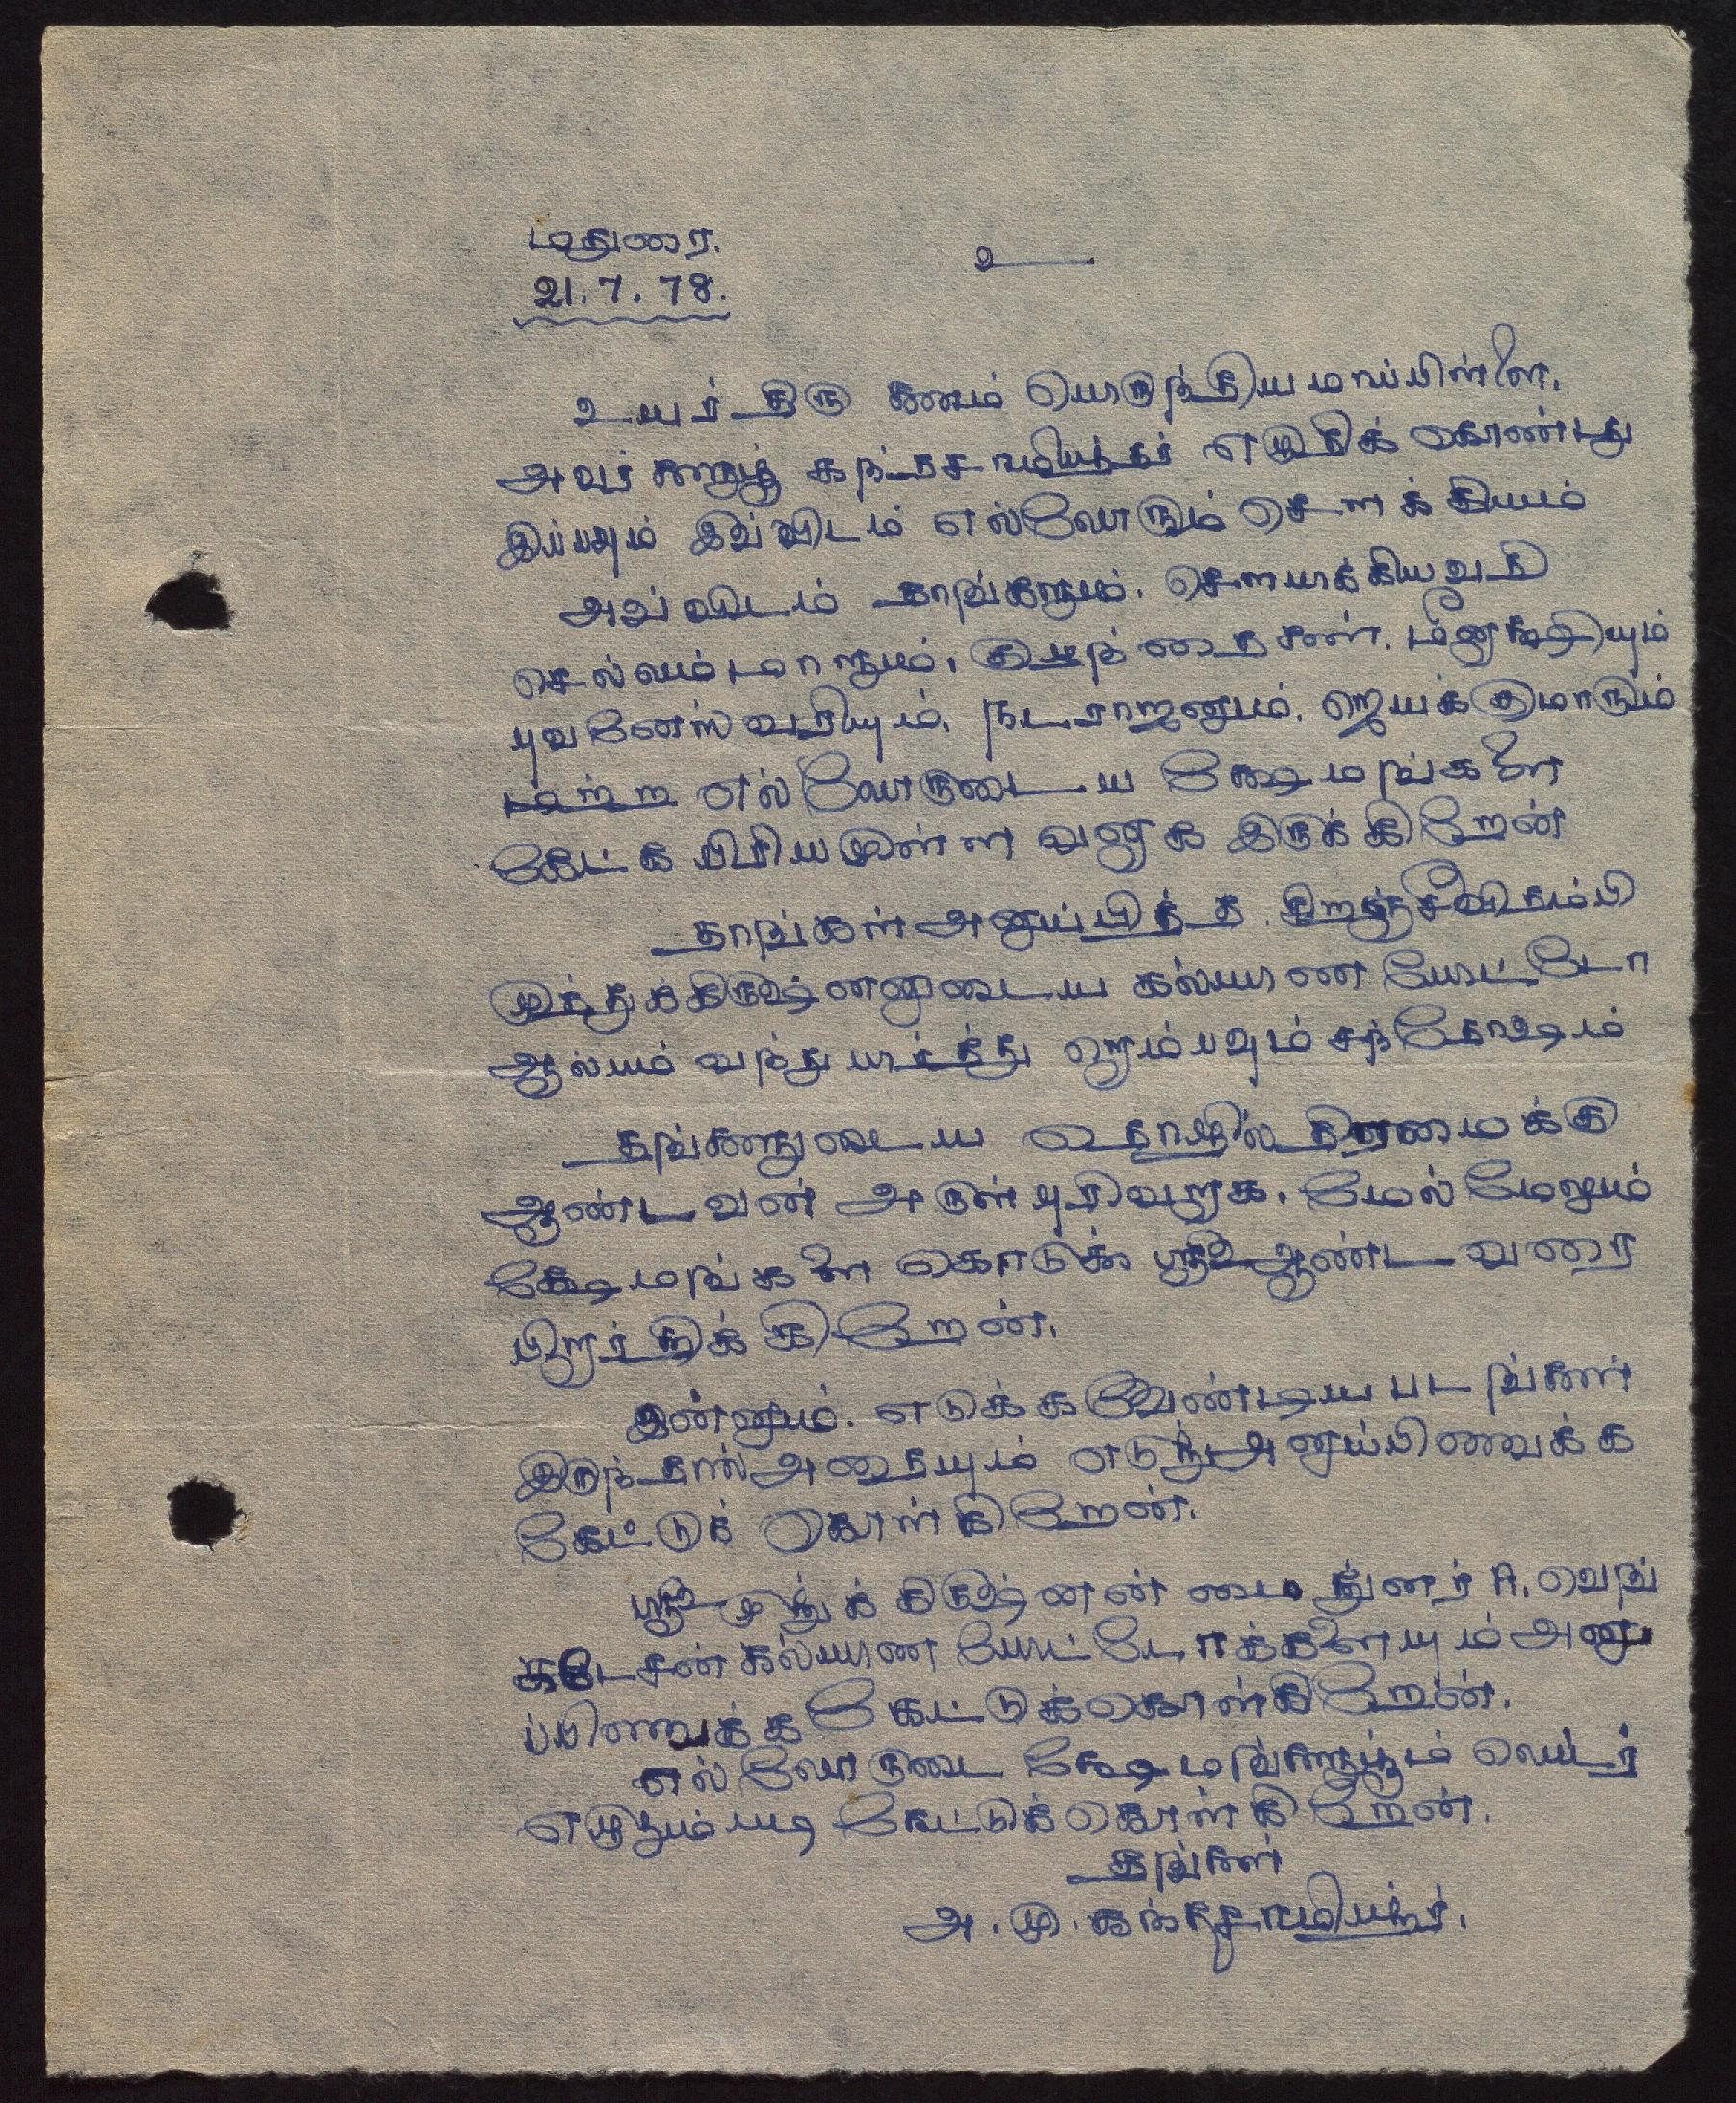 மதுரை.
உ
21.7.78.
உயர் திரு கணம் பொருந்திய மாப்பிள்ளை.
அவர்களுக்கு கந்தசாமியத்தர் எழுதிக் கொண்டது
இப்பவும் இவ்விடம் எல்லோரும் சௌக்கியம்
அவ்விடம் தாங்களும். சௌபாக்கியவதி
செல்வம்மாளும், குழந்தைகள். மீனாக்ஷியும்
புவனேஸ்வரியும், நடராஜனும், ஜெயக்குமாரும்
மற்ற எல்லோருடைய க்ஷேமங்களை
கேட்க பிரியமுள்ளவனாக இருக்கிறேன்
தாங்கள் அனுப்பித்த. சிறஞ்சீவி தம்பி
முத்துக்கிருஷ்ணனுடைய கல்யாண போட்டோ
ஆல்பம் வந்து பார்த்து றெம்பவும் சந்தோஷம்
தங்களுடைய தொழில் திறமைக்கு
ஆண்டவன் அருள் புரிவாறாக. மேல் மேலும்
க்ஷேமங்களை கொடுக்க ஸ்ரீ ஆண்டவரை
பிறார்திக்கிறேன்.
இன்னும். எடுக்க வேண்டிய படங்கள்
இருந்தால் அதையும் எடுத்து அனுப்பிவைக்க
கேட்டுக் கொள்கிறேன்.
ஸ்ரீ முத்துக்கிருஷ்ணன் மைத்துனர் A. வெங்
கடேசன் கல்யாண போட்டோக்களையும் அனு
ப்பிவைக்க கேட்டுக்கொள்கிறேன்.
எல்லோருடை க்ஷேமங்களுக்கும் லெட்டர்
எழுதும்படி கேட்டுக்கொள்கிறேன்.
தங்கள்
அ. மு. கந்தசாமியத்தர்.